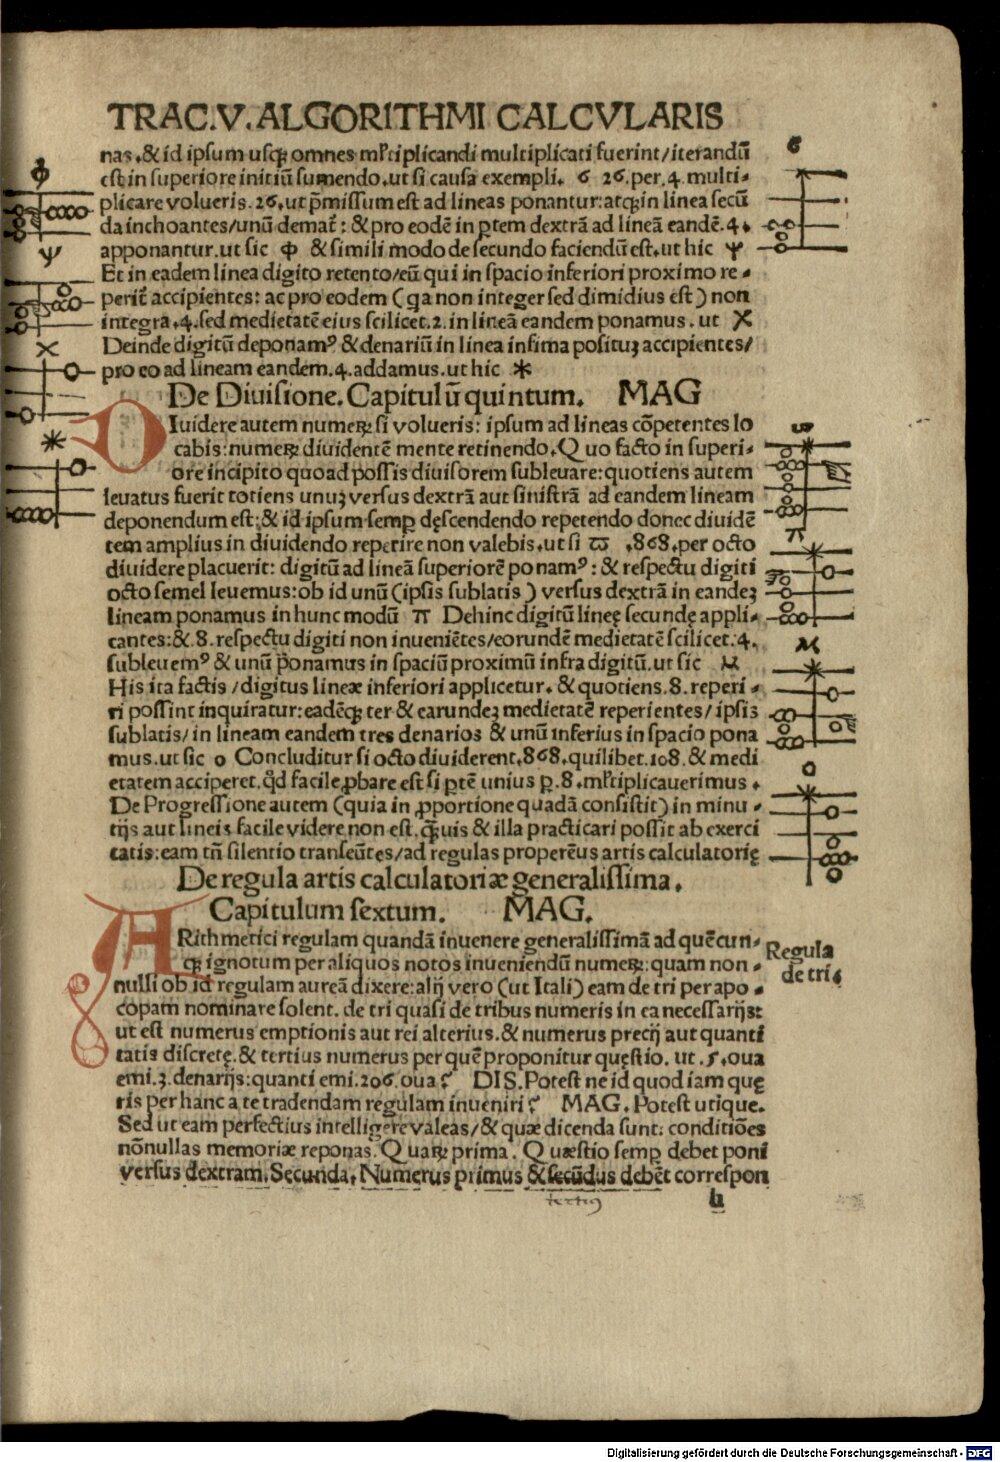 TRAC.V.ALGORITHMI CALCVLARIS
nas.&id ipsum usqꝫ omnes mľtiplicandi multiplicati fuerint/iterandū
est in superiore initiū sumendo.ut si causa exempli. 6 26.per.4.multi-
plicare volueris.26.ut p̄missum est ad lineas ponantur:atqꝫ in linea secū
da inchoantes/unū demat̃: & pro eodē in ꝑtem dextrā ad lineā eandē.4.
apponantur.ut sic ɸ & simili modo de secundo faciendū est.ut hic ψ
Et in eadem linea digito retento/eū qui in spacio inferiori proximo re-
perit̃ accipientes: ac pro eodem (qa non integer sed dimidius est) non
integra.4.sed medietatē eius scilicet.2.in lineā eandem ponamus.ut X
Deinde digitū deponamꝰ & denariū in linea infima posituꝫ accipientes/
pro eo ad lineam eandem.4.addamus.ut hic *
De Diuisione.Capitulū quintum. MAG
DIuidere autem numeꝝ si volueris: ipsum ad lineas cōpetentes lo
cabis:numeꝝ diuidentē mente retinendo.Quo facto in superi-
ore incipito quoad possis diuisorem subleuare:quotiens autem
leuatus fuerit totiens unuꝫ versus dextrā aut sinistrā ad eandem lineam
deponendum est:& id ipsum semꝑ dęscendendo repetendo donec diuidē
tem amplius in diuidendo reperire non valebis.ut si ϖ .868.per octo
diuidere placuerit: digitū ad lineā superiorē ponamꝰ: & respectu digiti
octo semel leuemus:ob id unū (ipsis sublatis) versus dextrā in eandeꝫ
lineam ponamus in hunc modū π Dehinc digitū lineę secundę appli-
cantes:&.8.respectu digiti non inueniētes/eorundē medietatē scilicet.4.
subleuemꝰ & unū p̄onamus in spaciū proximū infra digitū.ut sic ϻ
His ita factis /digitus lineæ inferiori applicetur. & quotiens.8.reperi-
ri possint inquiratur:eadēqꝫ ter & earundeꝫ medietatē reperientes/ipsis
sublatis/in lineam eandem tres denarios & unū inferius in spacio pona
mus.ut sic o Concluditur si octo diuiderent.868.quilibet.108.& medi
etatem acciperet.qd̛ facile ꝓbare est si ꝑtē unius ꝑ.8.mľtiplicauerimus.
De Progressione autem (quia in ꝓportione quadā consistit) in minu-
tijs aut lineis facile videre non est.q̄uis & illa practicari possit ab exerci
tatis:eam tñ silentio transeūtes/ad regulas properēus artis calculatorię
De regula artis calculatoriæ generalissima.
Capitulum sextum. MAG.
ARithmetici regulam quandā inuenere generalissimā ad quēcun-
qꝫ ignotum per aliquos notos inueniendū numeꝝ:quam non-
nulli ob id regulam aureā dixere:alij vero (ut Itali) eam de tri per apo-
copam nominare solent. de tri quasi de tribus numeris in ea necessarijs:
ut est numerus emptionis aut rei alterius.& numerus precij aut quanti
tatis discretę.& tertius numerus per quē proponitur quęstio. ut .5.oua
emi.3.denarijs:quanti emi.206.oua? DIS.Potest ne id quod iam quę
ris per hanc a te tradendam regulam inueniri? MAG.Potest utique.
Sed ut eam perfectius intelligere valeas/& quæ dicenda sunt: conditiōes
nōnullas memoriæ reponas.Quaꝝ prima.Quæstio semꝑ debet poni
versus dextram.Secunda.Numerus primus & secūdus debēt correspon
tertiꝰ
h
ɸ
ψ
X
*
6
ϖ
π
ϻ
o
Regula
de tri.
Digitalisierung gefördert durch die Deutsche Forschungsgemeinschaft - DFG